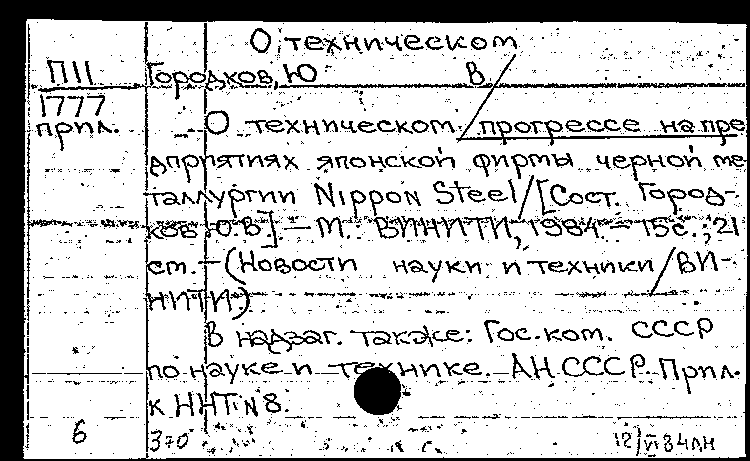 О техническом
П11 Городков, Ю В
1777
прил. О техническом / прогрессе на пре
дприятиях японской фирмы черной ме
таллургии Nippon Steel / [Сост. Город-
ков Ю.В]. — М.: ВИНИТИ, 1984. — 15с.; 21
ст. — (Новости науки и техники / ВИ-
НИТИ)
В надзаг. также: Гос. ком. СССР
по науке и технике. АН СССР. Прил.
к ННТ N 8.
6 370 12/VI 84